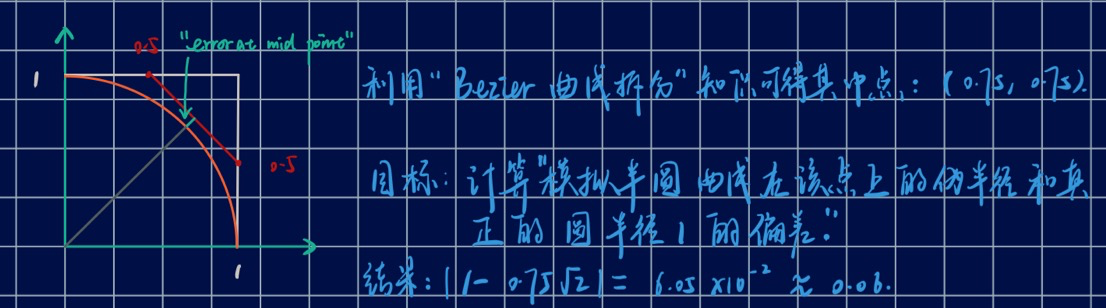 0.5 "error at mid point"
1
利用"Bezier 曲线拆分"知识可得其中点：(0.75, 0.75).
0.5
目标：计算"模拟半圆曲线在该点上的伪半径和真
正的圆半径 1 的偏差."
1
结果：|1-0.75√2| = 6.05 ×10⁻² ≈ 0.06.